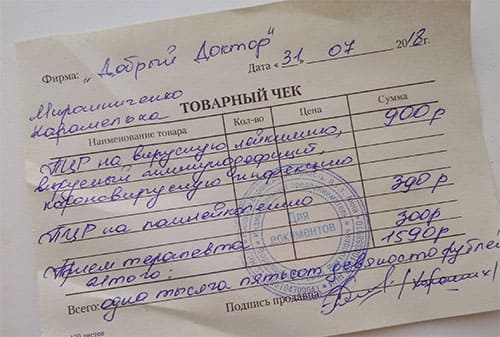 Фирма: „Добрый Доктор"
Дата « 31 » 07 2018 г.
Мирошниченко
Карамелька
ТОВАРНЫЙ ЧЕК
Наименование товара Кол-во Цена Сумма
ПЦР на вирусную лейкемию, 900 р
вирусный иммунодефицит,
короновирусную инфекцию
ПЦР на панлейкопению 390 р
Прием терапевта 300 р
Итого: 1590 р
Всего: одна тысяча пятьсот девяносто рублей
Подпись продавца
100 листов
Для
документов